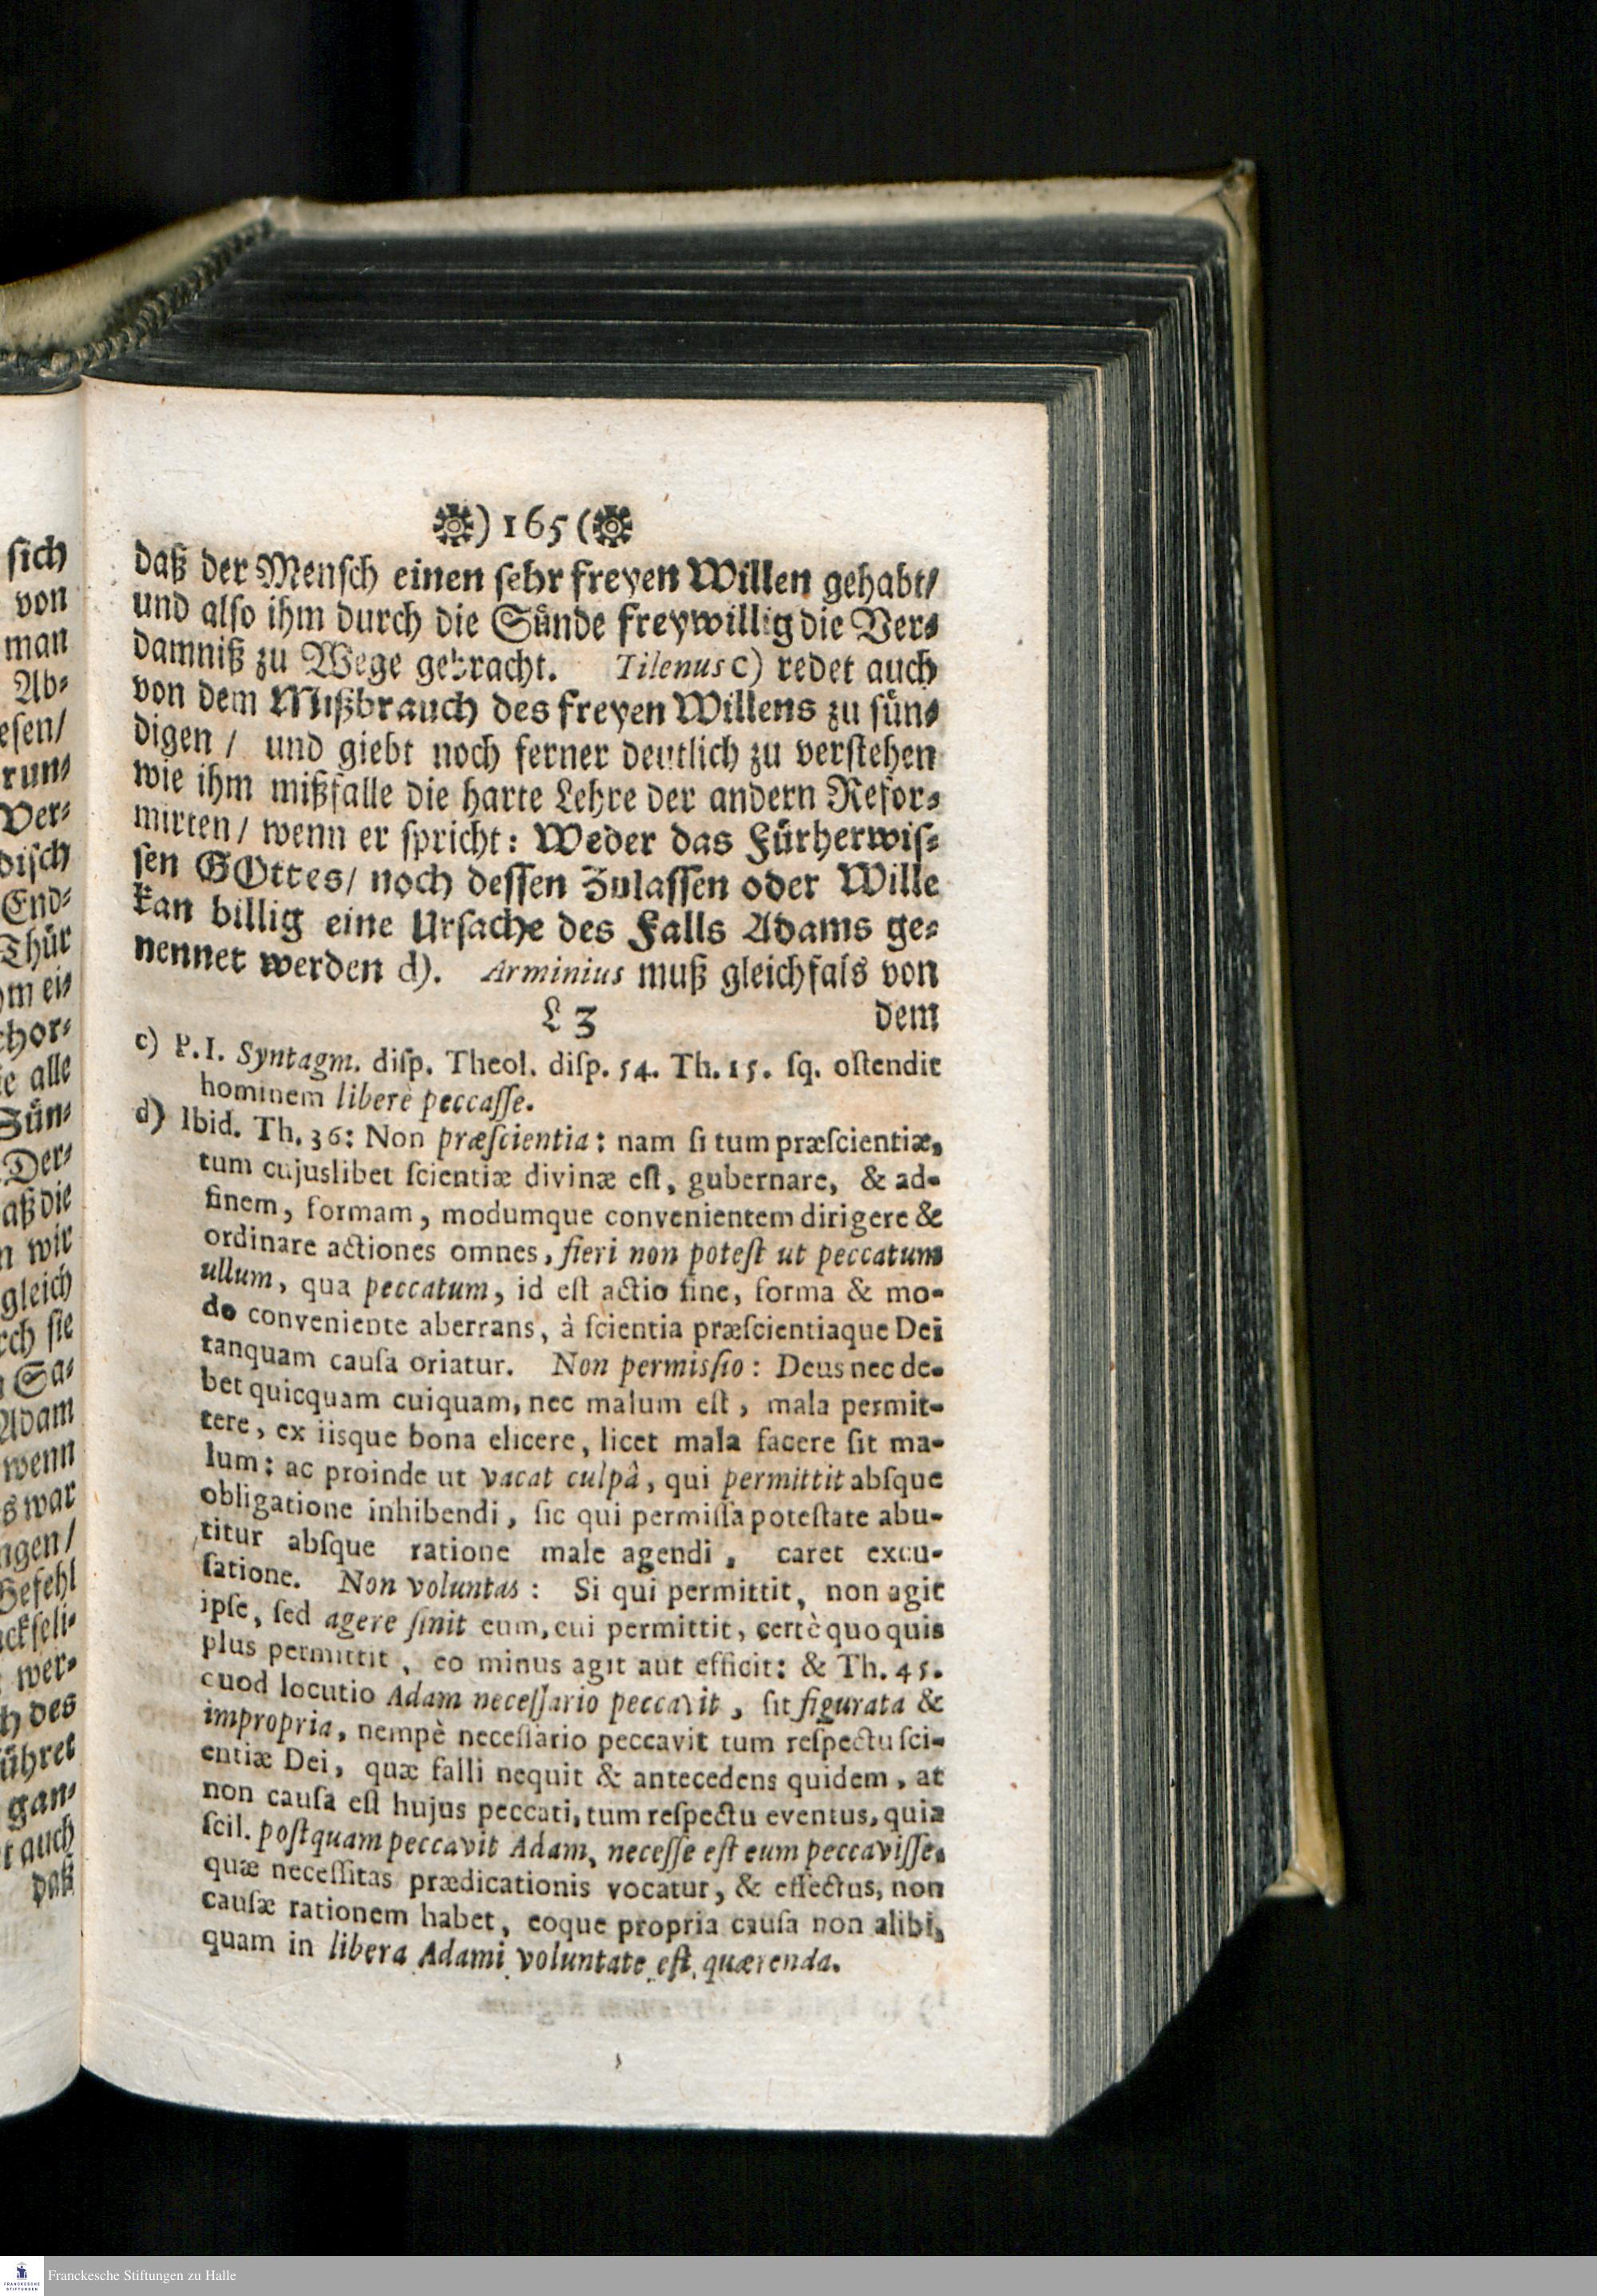 sich
von
man
Ab⸗
esen/
run⸗
Ver⸗
disch
End⸗
Thür
m ei⸗
chor⸗
e alle
Sün⸗
Der⸗
aß die
n wir
gleich
rch sie
Sa⸗
Adam
wenn
s war
ngen/
Befehl
ckseli⸗
wer⸗
h des
ühret
gan⸗
t auch
daß
) 165 (
daß der Mensch einen sehr freyen Willen gehabt/
und also ihm durch die Sünde freywillig die Ver⸗
damniß zu Wege gebracht. Tilenus c) redet auch
von dem Mißbrauch des freyen Willens zu sün⸗
digen / und giebt noch ferner deutlich zu verstehen
wie ihm mißfalle die harte Lehre der andern Refor⸗
mirten / wenn er spricht: Weder das Fürherwis⸗
sen GOttes/ noch dessen Zulassen oder Wille
kan billig eine Ursache des Falls Adams ge⸗
nennet werden d). Arminius muß gleichfals von
L 3 dem
c) P. I. Syntagm. disp. Theol. disp. 54. Th. 15. sq. ostendit
hominem liberè peccasse.
d) Ibid. Th. 36: Non præscientia: nam si tum præscientiæ,
tum cujuslibet scientiæ divinæ est, gubernare, & ad-
finem, formam, modumque convenientem dirigere &
ordinare actiones omnes, fieri non potest ut peccatum
ullum, qua peccatum, id est actio fine, forma & mo-
do conveniente aberrans, à scientia præscientiaque Dei
tanquam causa oriatur. Non permissio: Deus nec de-
bet quicquam cuiquam, nec malum est, mala permit-
tere, ex iisque bona elicere, licet mala facere sit ma-
lum: ac proinde ut vacat culpâ, qui permittit absque
obligatione inhibendi, sic qui permissa potestate abu-
titur absque ratione male agendi, caret excu-
satione. Non voluntas: Si qui permittit, non agit
ipse, sed agere sinit eum, cui permittit, certè quo quis
plus permittit, eo minus agit aut efficit: & Th. 45.
cuod locutio Adam necessario peccavit, sit figurata &
impropria, nempè necessario peccavit tum respectu sci-
entiæ Dei, quæ falli nequit & antecedens quidem, at
non causa est hujus peccati, tum respectu eventus, quia
scil. postquam peccavit Adam, necesse est eum peccavisse.
quæ necessitas prædicationis vocatur, & effectus, non
causæ rationem habet, eoque propria causa non alibi,
quam in libera Adami voluntate est quærenda.
FRANCKESCHE
STIFTUNGEN
Franckesche Stiftungen zu Halle